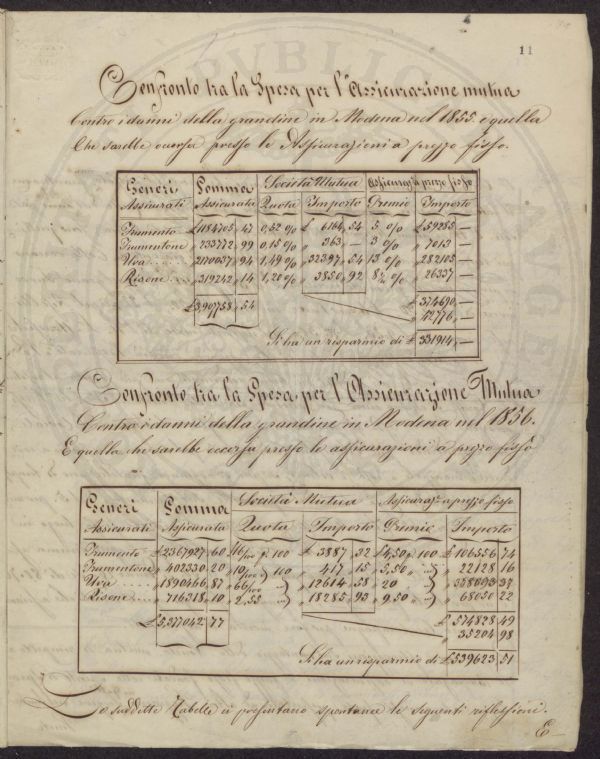 11
Confronto tra la Spesa per l'Assicurazione mutua
Contro i danni della grandine in Modena nel 1855. e quella
Che sarebbe occorsa presso le Assicurazioni a prezzo fisso.
Generi Somma Società Mutua Assicuraz. a prezzo fisso
Assicurati Assicurata Quota Importo Premio Importo
Frumento £ 1184705 47 0,52 % £ 6164 54 5 % £ 59285 —
Frumentone " 233772 99 0,15 % " 363 — 3 % " 7013 —
Uva " 2170037 94 1,49 % " 32397 54 13 % " 282105 —
Risone " 319242 14 1,20 % " 3850 92 8 ¼ % " 26337 —
£ 3,907758 54 £ 374690 —
" 42776 —
Si ha un risparmio di £ 331914 —
Confronto tra la Spesa per l'Assicurazione Mutua
Contro i danni della grandine in Modena nel 1856.
E quella che sarebbe occorsa presso le assicurazioni a prezzo fisso
Generi Somma Società Mutua Assicuraz. a prezzo fisso
Assicurati Assicurata Quota Importo Premio Importo
Frumento £ 2367927 60 16/100 p. 100 £ 3887 32 £ 4,50 p. 100 £ 106556 74
Frumentone " 402330 20 10/100 p. 100 " 417 15 " 5,50 " " 22128 16
Uva " 1890466 87 66/100 " 12614 58 " 20 " 378093 37
Risone " 716318 10 " 2,55 " 18285 93 " 9,50 " " 68050 22
£ 5,377042 77 £ 574828 49
" 35204 98
Si ha un risparmio di £ 539623 51
Le suddette Tabelle ci presentano spontanee le seguenti riflessioni.
E